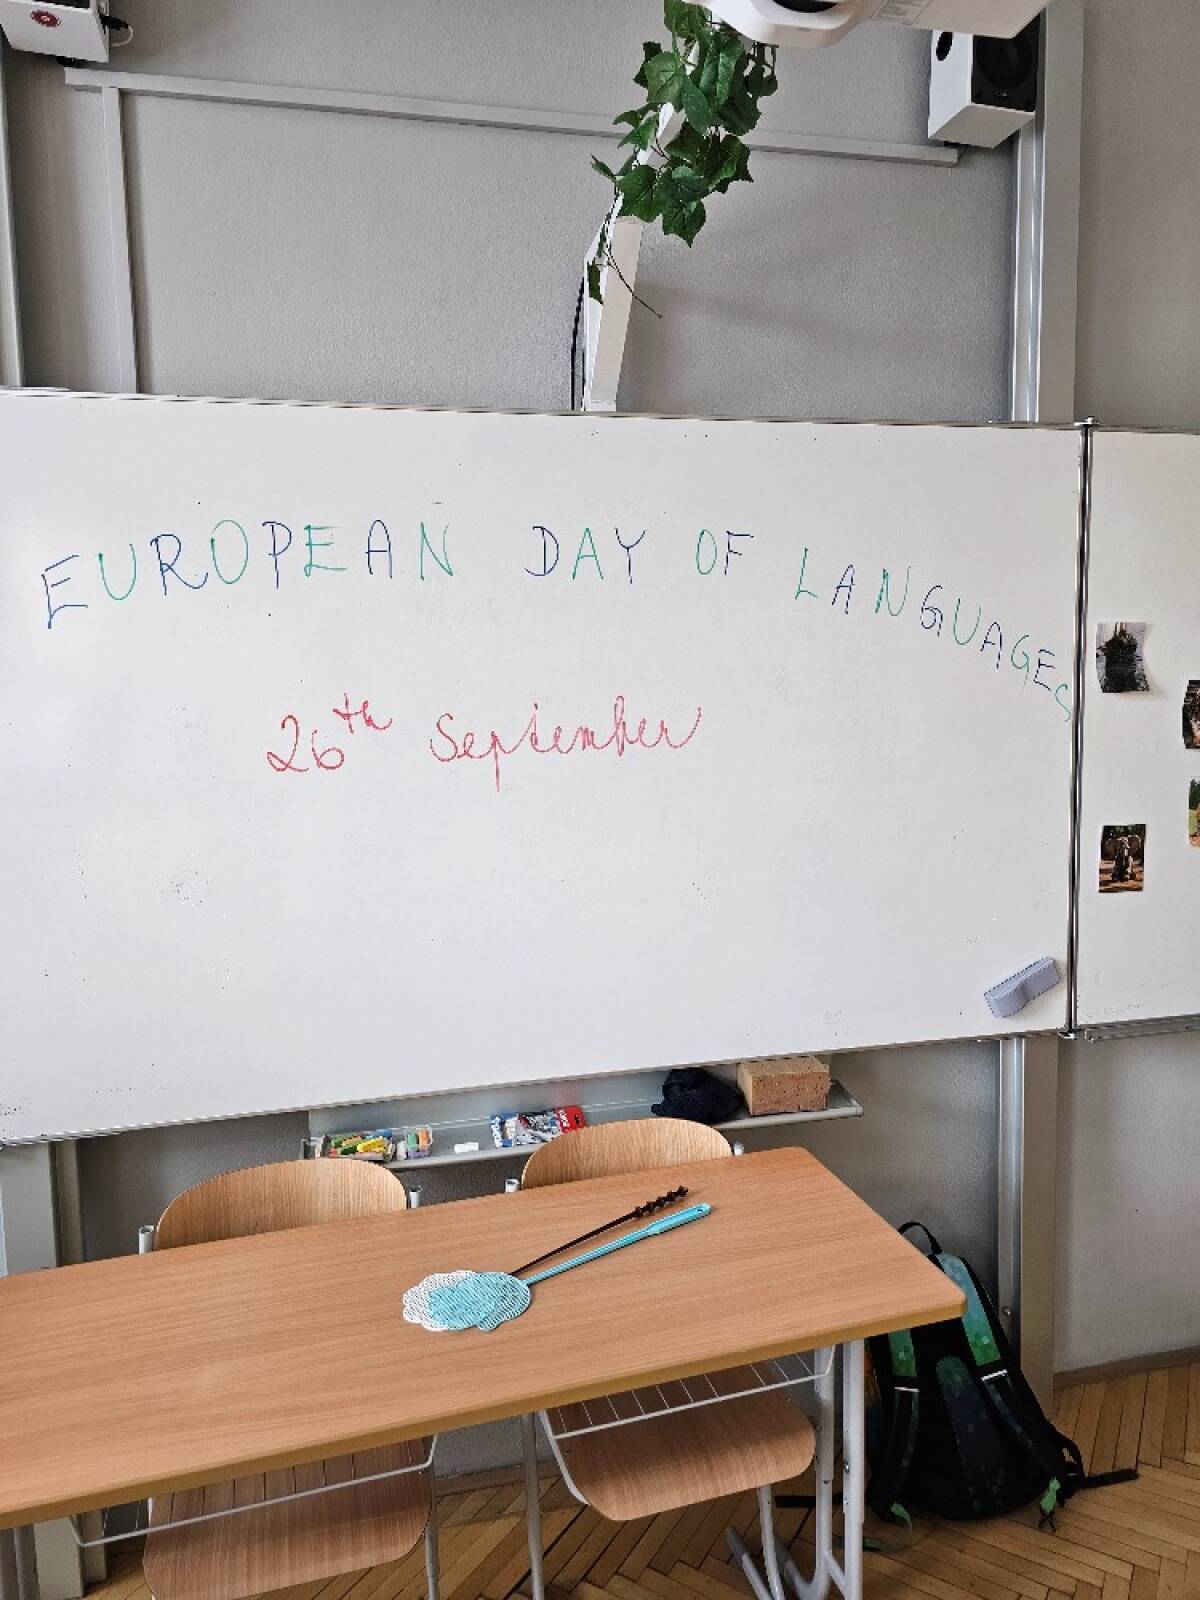 EUROPEAN DAY OF LANGUAGES
26th September